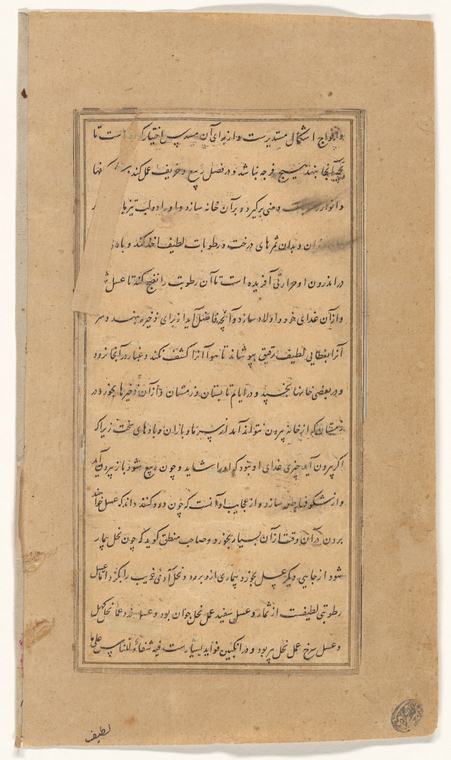 اشکال مستدیرست و از برای آن مسدس اختیار کرد است تا
آنجا بنهد هیچ فرجه نباشد و در فصل ربیع و خریف عمل کند
و انوار برگیرد و بر آن خانه سازد و او را دو لب تیز
و بدان ثمرهای درخت و رطوبات لطیف اخذ کند و
در اندرون او حرارتی آفریده است تا آن رطوبت را نضج کند تا عسل
و از آن غذای خود و اولاد سازد و آنچه فاضل آید از برای ذخیره بنهد و سر
آنرا بغطایی لطیف رقیق بپوشاند تا هوا آنرا کشف نکند و غبار در آنجا نرود
و در بعضی خانها بخسپد و در ایام تابستان و زمستان از آن ذخیرها بخورد و در
زمستان که از خانه بیرون نتواند آمد از سرما و باران و بادهای سخت زیرا که
اگر بیرون آید چیزی غذای او نبود که او را شاید و چون ربیع شود باز بیرون آید
و از شکوفها سازد و از عجایب او آنست که چون دود کنند داند که عسل خواهند
بردن در آن وقت از آن بسیار بخورد و صاحب منطق گوید که چون نحل بیمار
شود از جایی دیگر عسل بخورد بیماری ازو برود و نحل آدمی غریب را بگزد اما عسل
رطوبتی لطیفست از ثمار و عسل سفید عمل نحل جوان بود و عسل زرد عمل نحل کهل
و عسل سرخ عمل نحل پیر بود و در انگبین فواید بسیارست فیه شفاء للناس
لطیف